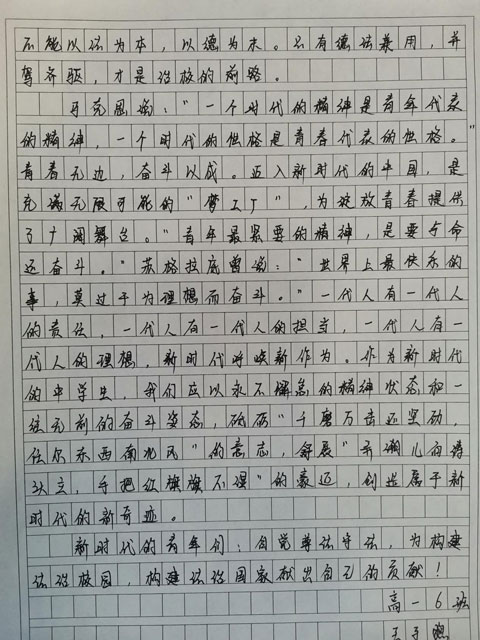 不能以法为本，以德为末。只有德法兼用，并
驾齐驱，才是治校的前路。
马克思说：“一个时代的精神是青年代表
的精神，一个时代的性格是青春代表的性格。”
青春无边，奋斗以成。迈入新时代的中国，是
充满无限可能的“梦工厂”，为绽放青春提供
了广阔舞台。“青年最紧要的精神，是要与命
运奋斗。”苏格拉底曾说：“世界上最快乐的
事，莫过于为理想而奋斗。”一代人有一代人
的责任，一代人有一代人的担当，一代人有一
代人的理想，新时代呼唤新作为。作为新时代
的中学生，我们应以永不懈怠的精神状态和一
往无前的奋斗姿态，砥砺“千磨万击还坚劲，
任尔东西南北风”的意志，舒展“弄潮儿向涛
头立，手把红旗旗不湿”的豪迈，创造属于新
时代的新奇迹。
新时代的青年们：自觉尊法守法，为构建
法治校园，构建法治国家献出自己的贡献！
高一6班